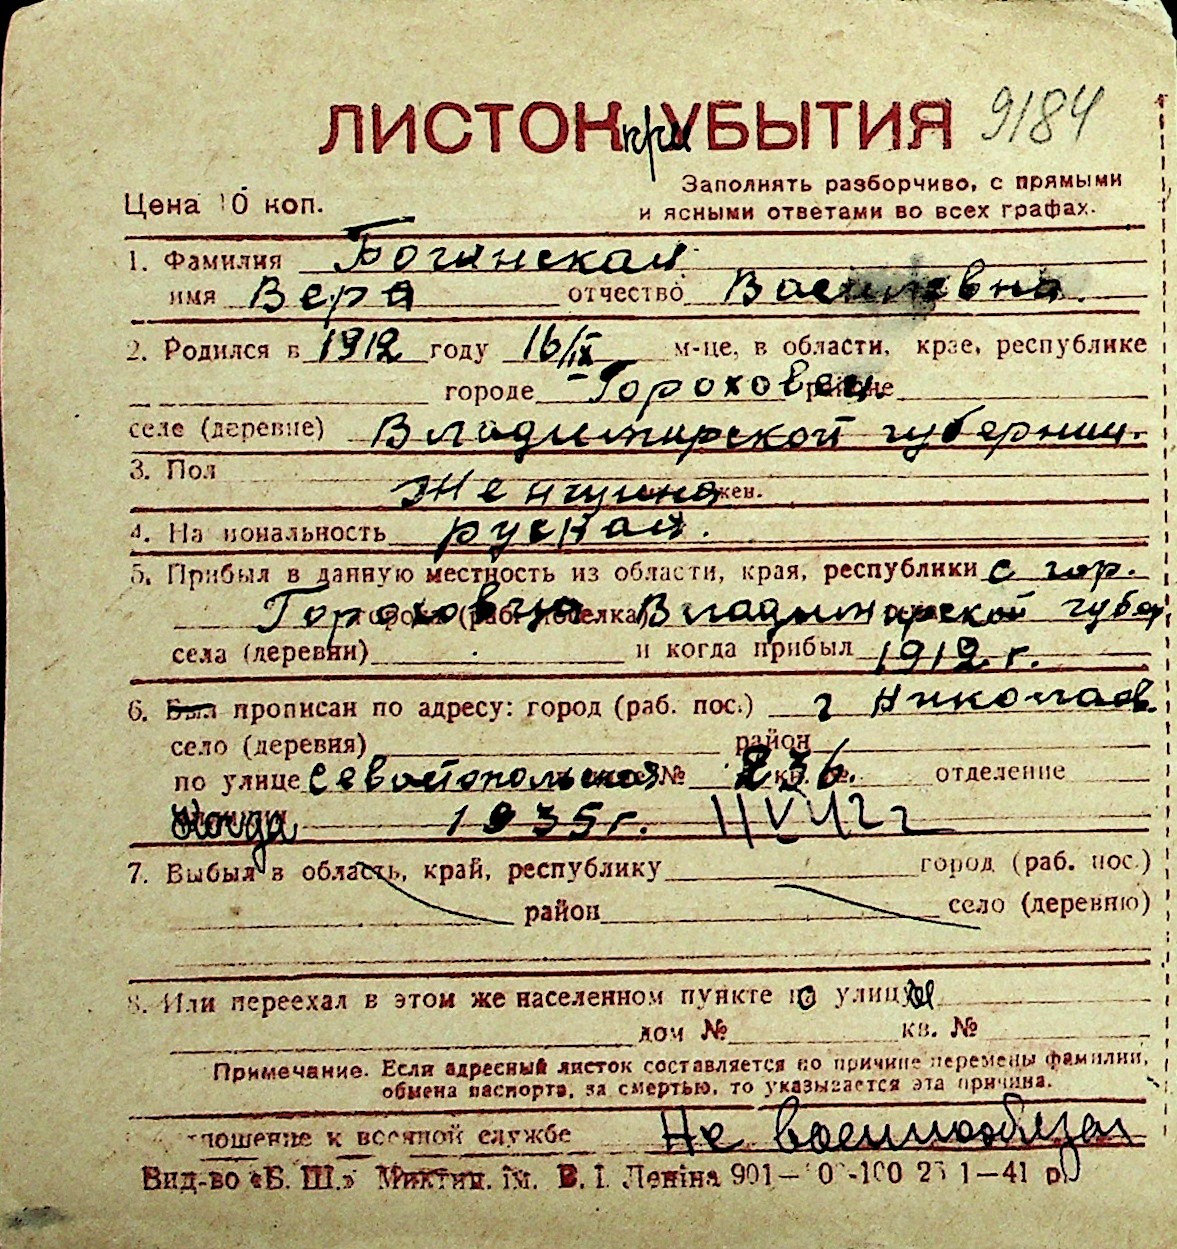 ЛИСТОК при УБЫТИЯ 9184
Цена 10 коп.
Заполнять разборчиво, с прямыми
и ясными ответами во всех графах.
1. Фамилия Богинская
имя Вера отчество Василевна.
2. Родился в 1912 году 16/IX м-це, в области, крае, республике
городе Гороховец районе
селе (деревне) Владимирской губернии.
3. Пол Женщина жен.
4. Национальность руская.
5. Прибыл в данную местность из области, края, республики с гор.
Гороховца города (раб. поселка) Владимирской губер
села (деревни) и когда прибыл 1912. г.
6. Был прописан по адресу: город (раб. пос.) г Николаев.
село (деревня) район
по улице Севастопольская № 236. кв. № отделение
Когда 1935 г.
7. Выбыл в область, край, республику город (раб. пос.)
район село (деревню)
8. Или переехал в этом же населенном пункте по улице
дом № кв. №
Примечание. Если адресный листок составляется по причине перемены фамилии,
обмена паспорта, за смертью, то указывается эта причина.
Отношение к военной службе Не военнообязан
Вид-во «Б. Ш.» Миктип. ім. В. І. Леніна 901— -100 1—41 р.